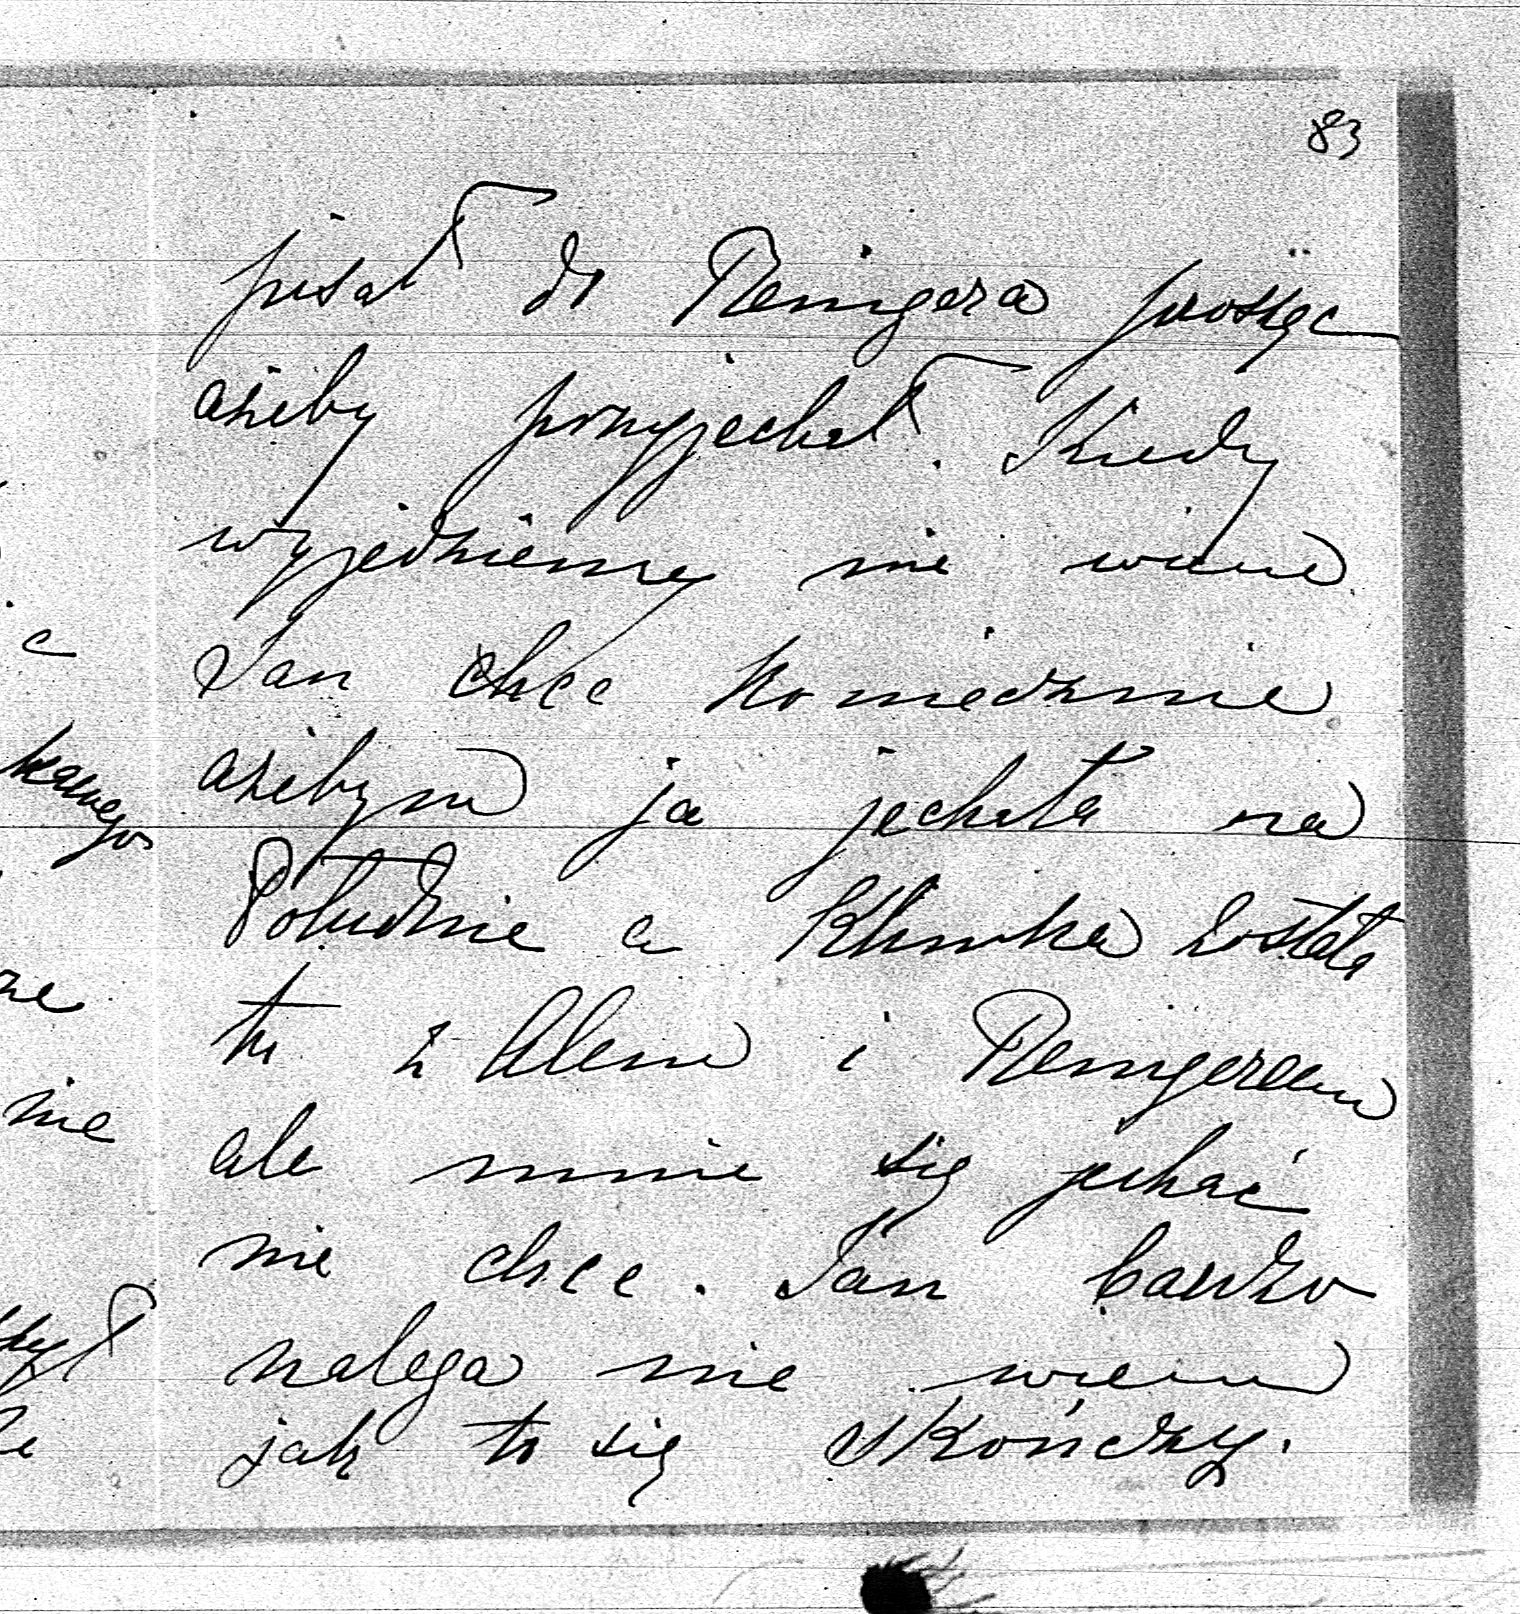 83
pisał do Renigera prosząc
ażeby przyjechał. Kiedy
wyjedziemy nie wiem
Jan chce koniecznie
ażebym ja jechała na
Południe a Klimka została
tu z Alem i Renigerem
ale mnie się jechać
nie chce. Jan bardzo
nalega nie wiem
jak to się skończy.